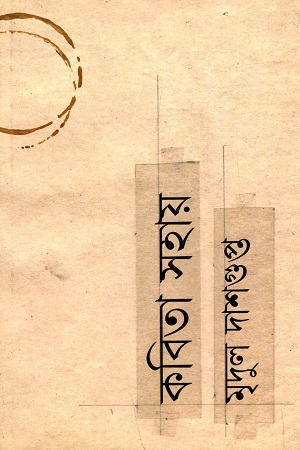 কবিতা সহায়
মৃদুল দাশগুপ্ত